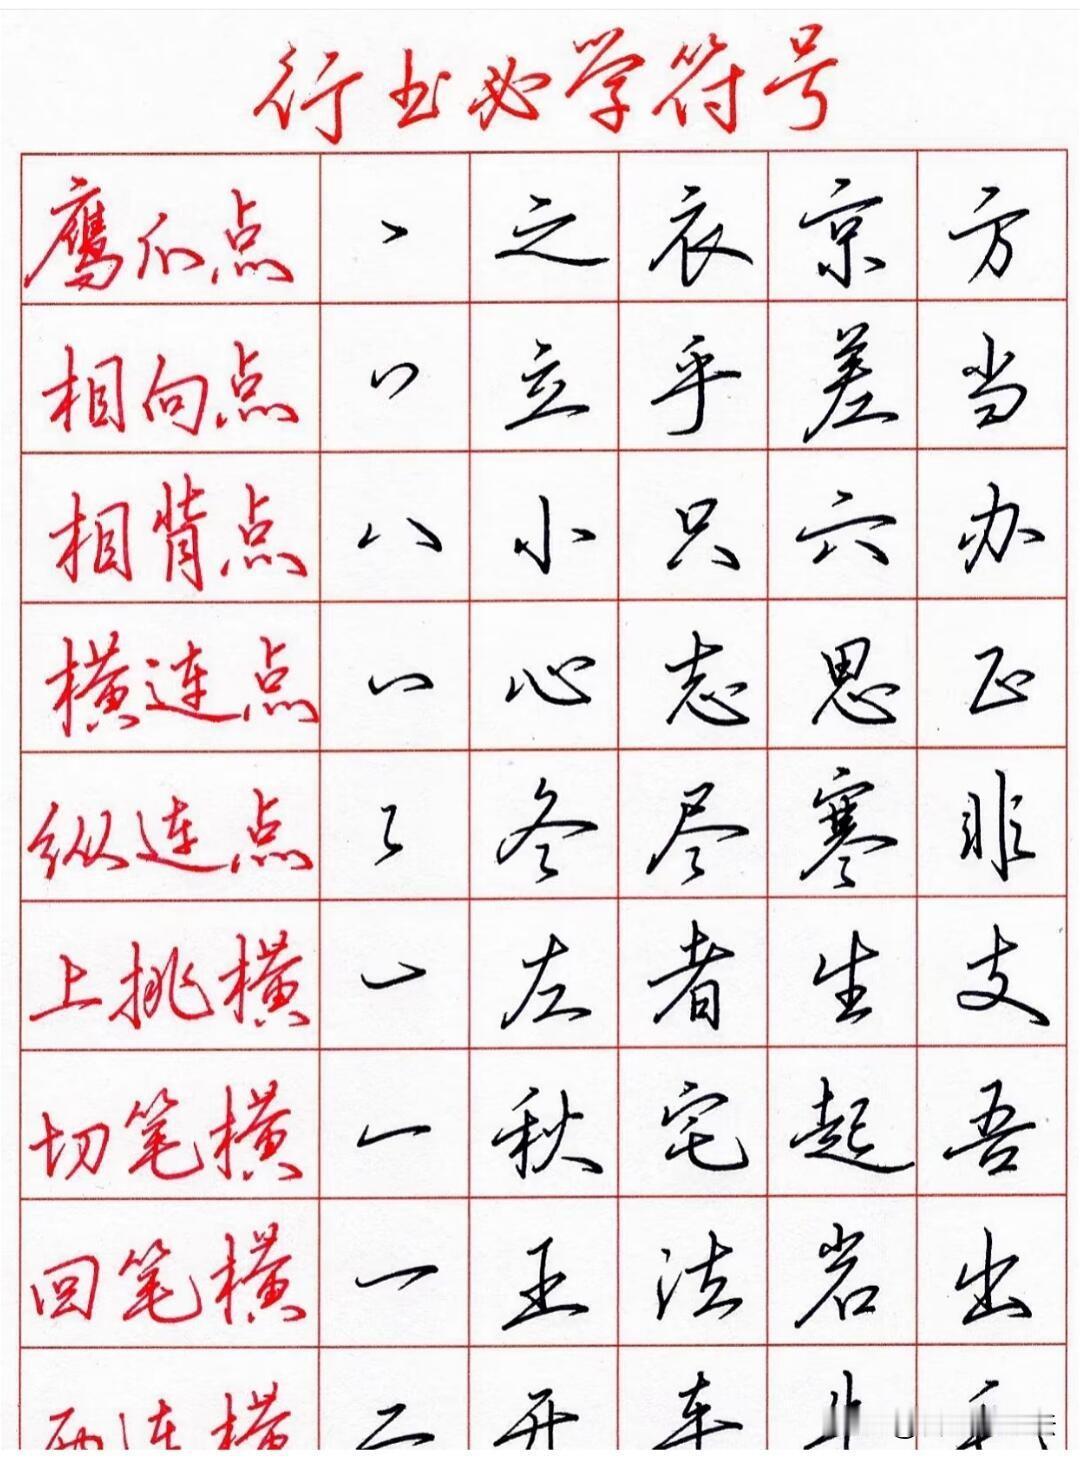 行书必学符号
鹰爪点 丶 之 衣 京 方
相向点 丷 立 乎 差 当
相背点 八 小 只 六 办
横连点 心 志 思 正
纵连点 冬 尽 寒 非
上挑横 ㇀ 左 者 生 支
切笔横 一 秋 宅 起 吾
回笔横 一 王 法 岩 出
两连横 二 开 车